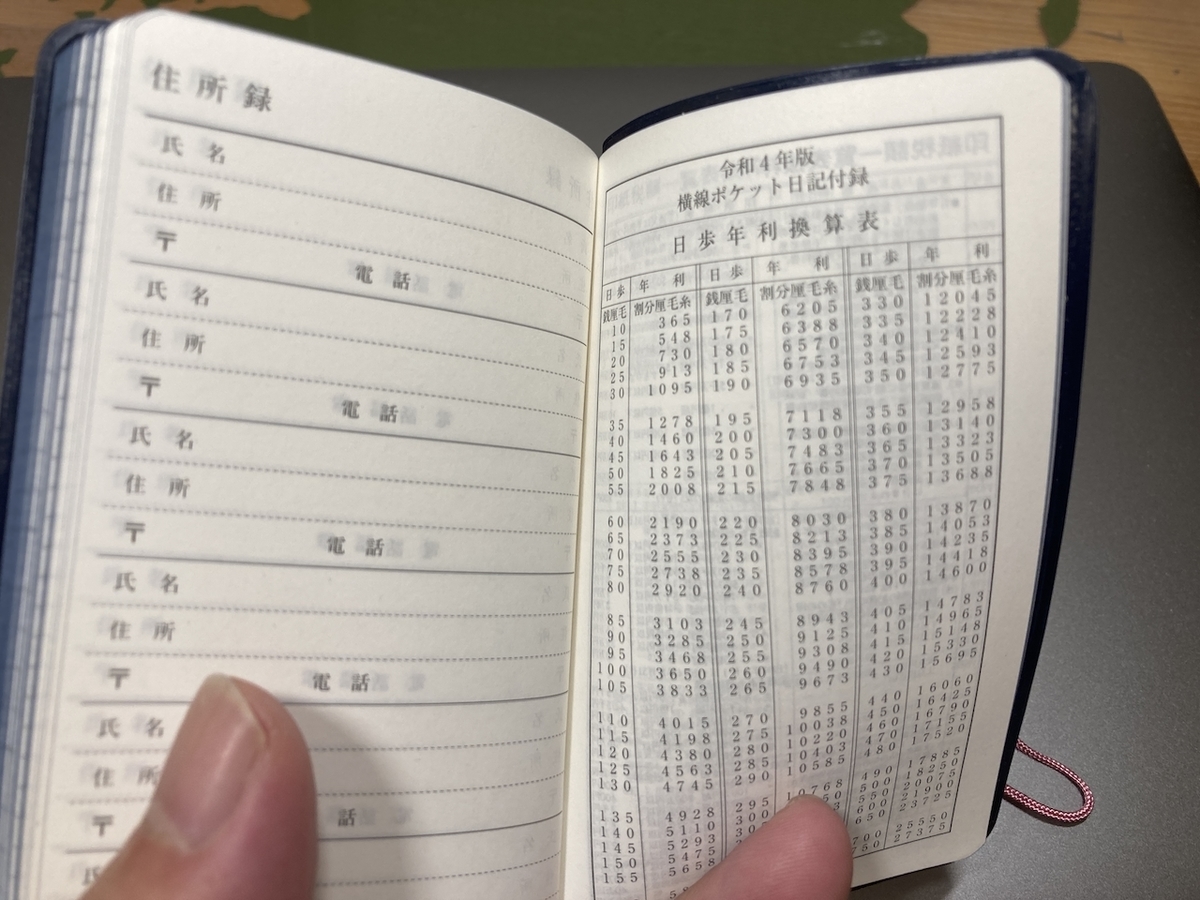 住所録
氏名
住所
〒 電話
氏名
住所
〒 電話
氏名
住所
〒 電話
氏名
住所
〒 電話
氏名
住所
〒 話
氏
令和4年版
横線ポケット日記付録
日歩年利換算表
日歩 年利 日歩 年利 日歩 年利
銭厘毛 割分厘毛糸 銭厘毛 割分厘毛糸 銭厘毛 割分厘毛糸
10 365 170 6205 330 12045
15 548 175 6388 335 12228
20 730 180 6570 340 12410
25 913 185 6753 345 12593
30 1095 190 6935 350 12775
35 1278 195 7118 355 12958
40 1460 200 7300 360 13140
45 1643 205 7483 365 13323
50 1825 210 7665 370 13505
55 2008 215 7848 375 13688
60 2190 220 8030 380 13870
65 2373 225 8213 385 14053
70 2555 230 8395 390 14235
75 2738 235 8578 395 14418
80 2920 240 8760 400 14600
85 3103 245 8943 405 14783
90 3285 250 9125 410 14965
95 3468 255 9308 415 15148
100 3650 260 9490 420 15330
105 3833 265 9673 430 15695
110 4015 270 9855 440 16060
115 4198 275 10038 450 16425
120 4380 280 10220 460 16790
125 4563 285 10403 470 17155
130 4745 290 10585 480 17520
135 4928 295 10768 490 17885
140 5110 300 500 18250
145 5293 550 20075
150 5475 600 21900
155 5658 650 23725
25550
27375